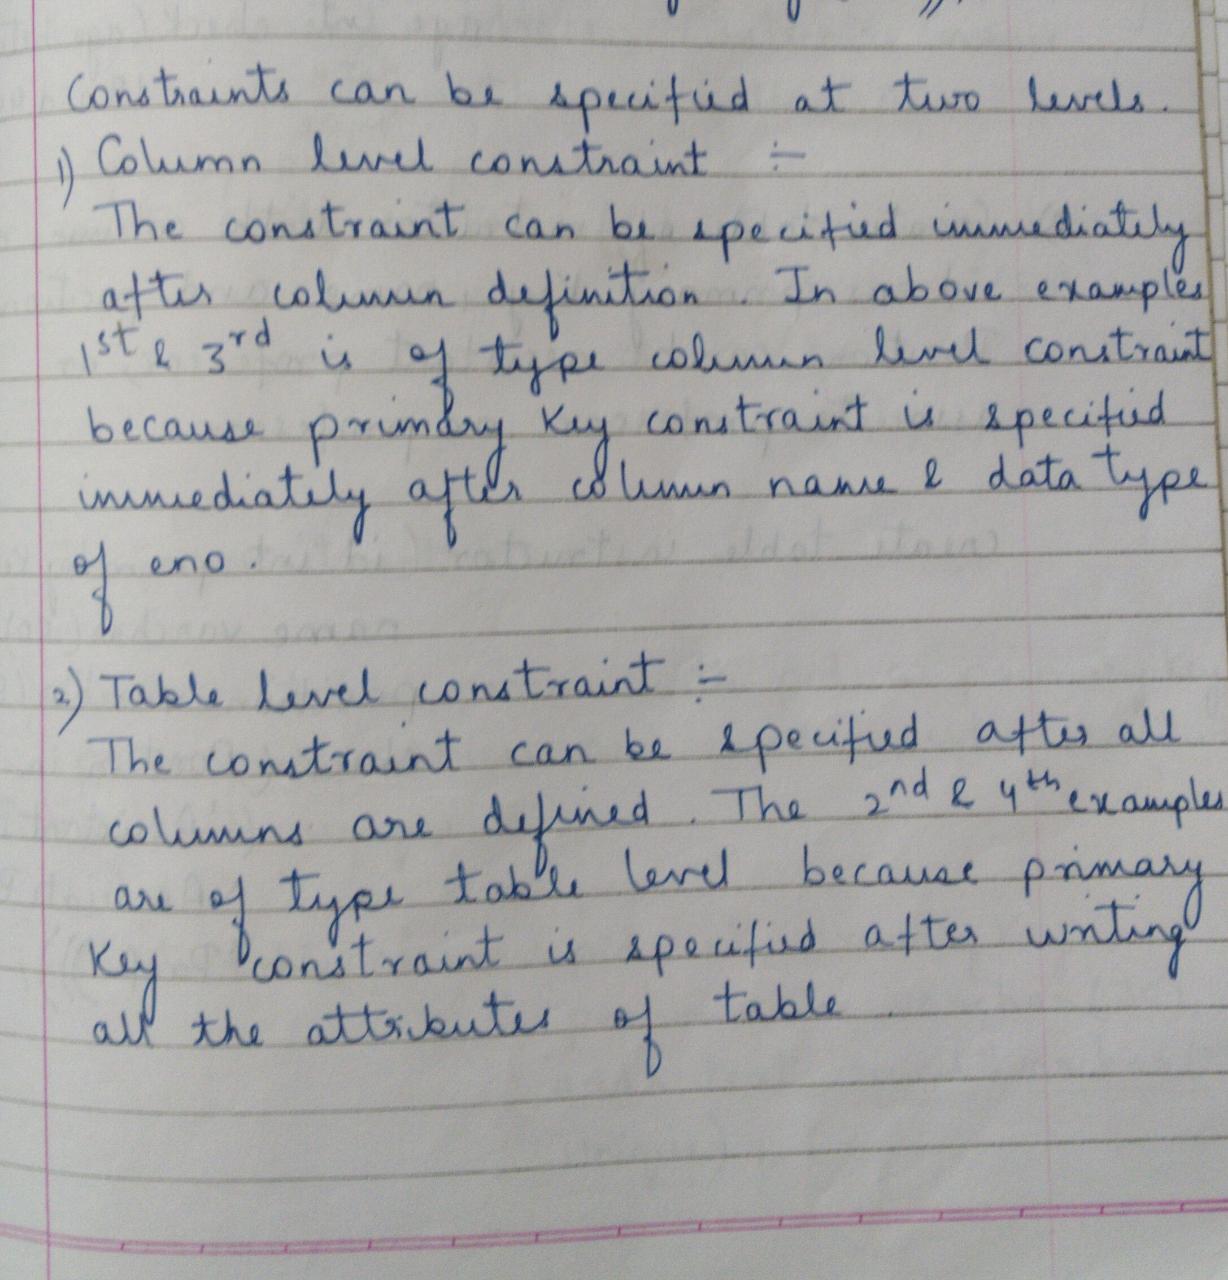 Constraints can be specified at two levels.
1) Column level constraint :-
The constraint can be specified immediately
after column definition. In above examples
1st & 3rd is of type column level constraint
because primary key constraint is specified
immediately after column name & data type
of eno.
2) Table level constraint :-
The constraint can be specified after all
columns are defined. The 2nd & 4th examples
are of type table level because primary
key constraint is specified after writing
all the attributes of table.